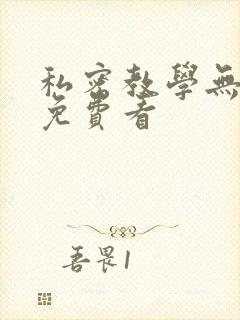 私密教學無
免費看
吾畏1